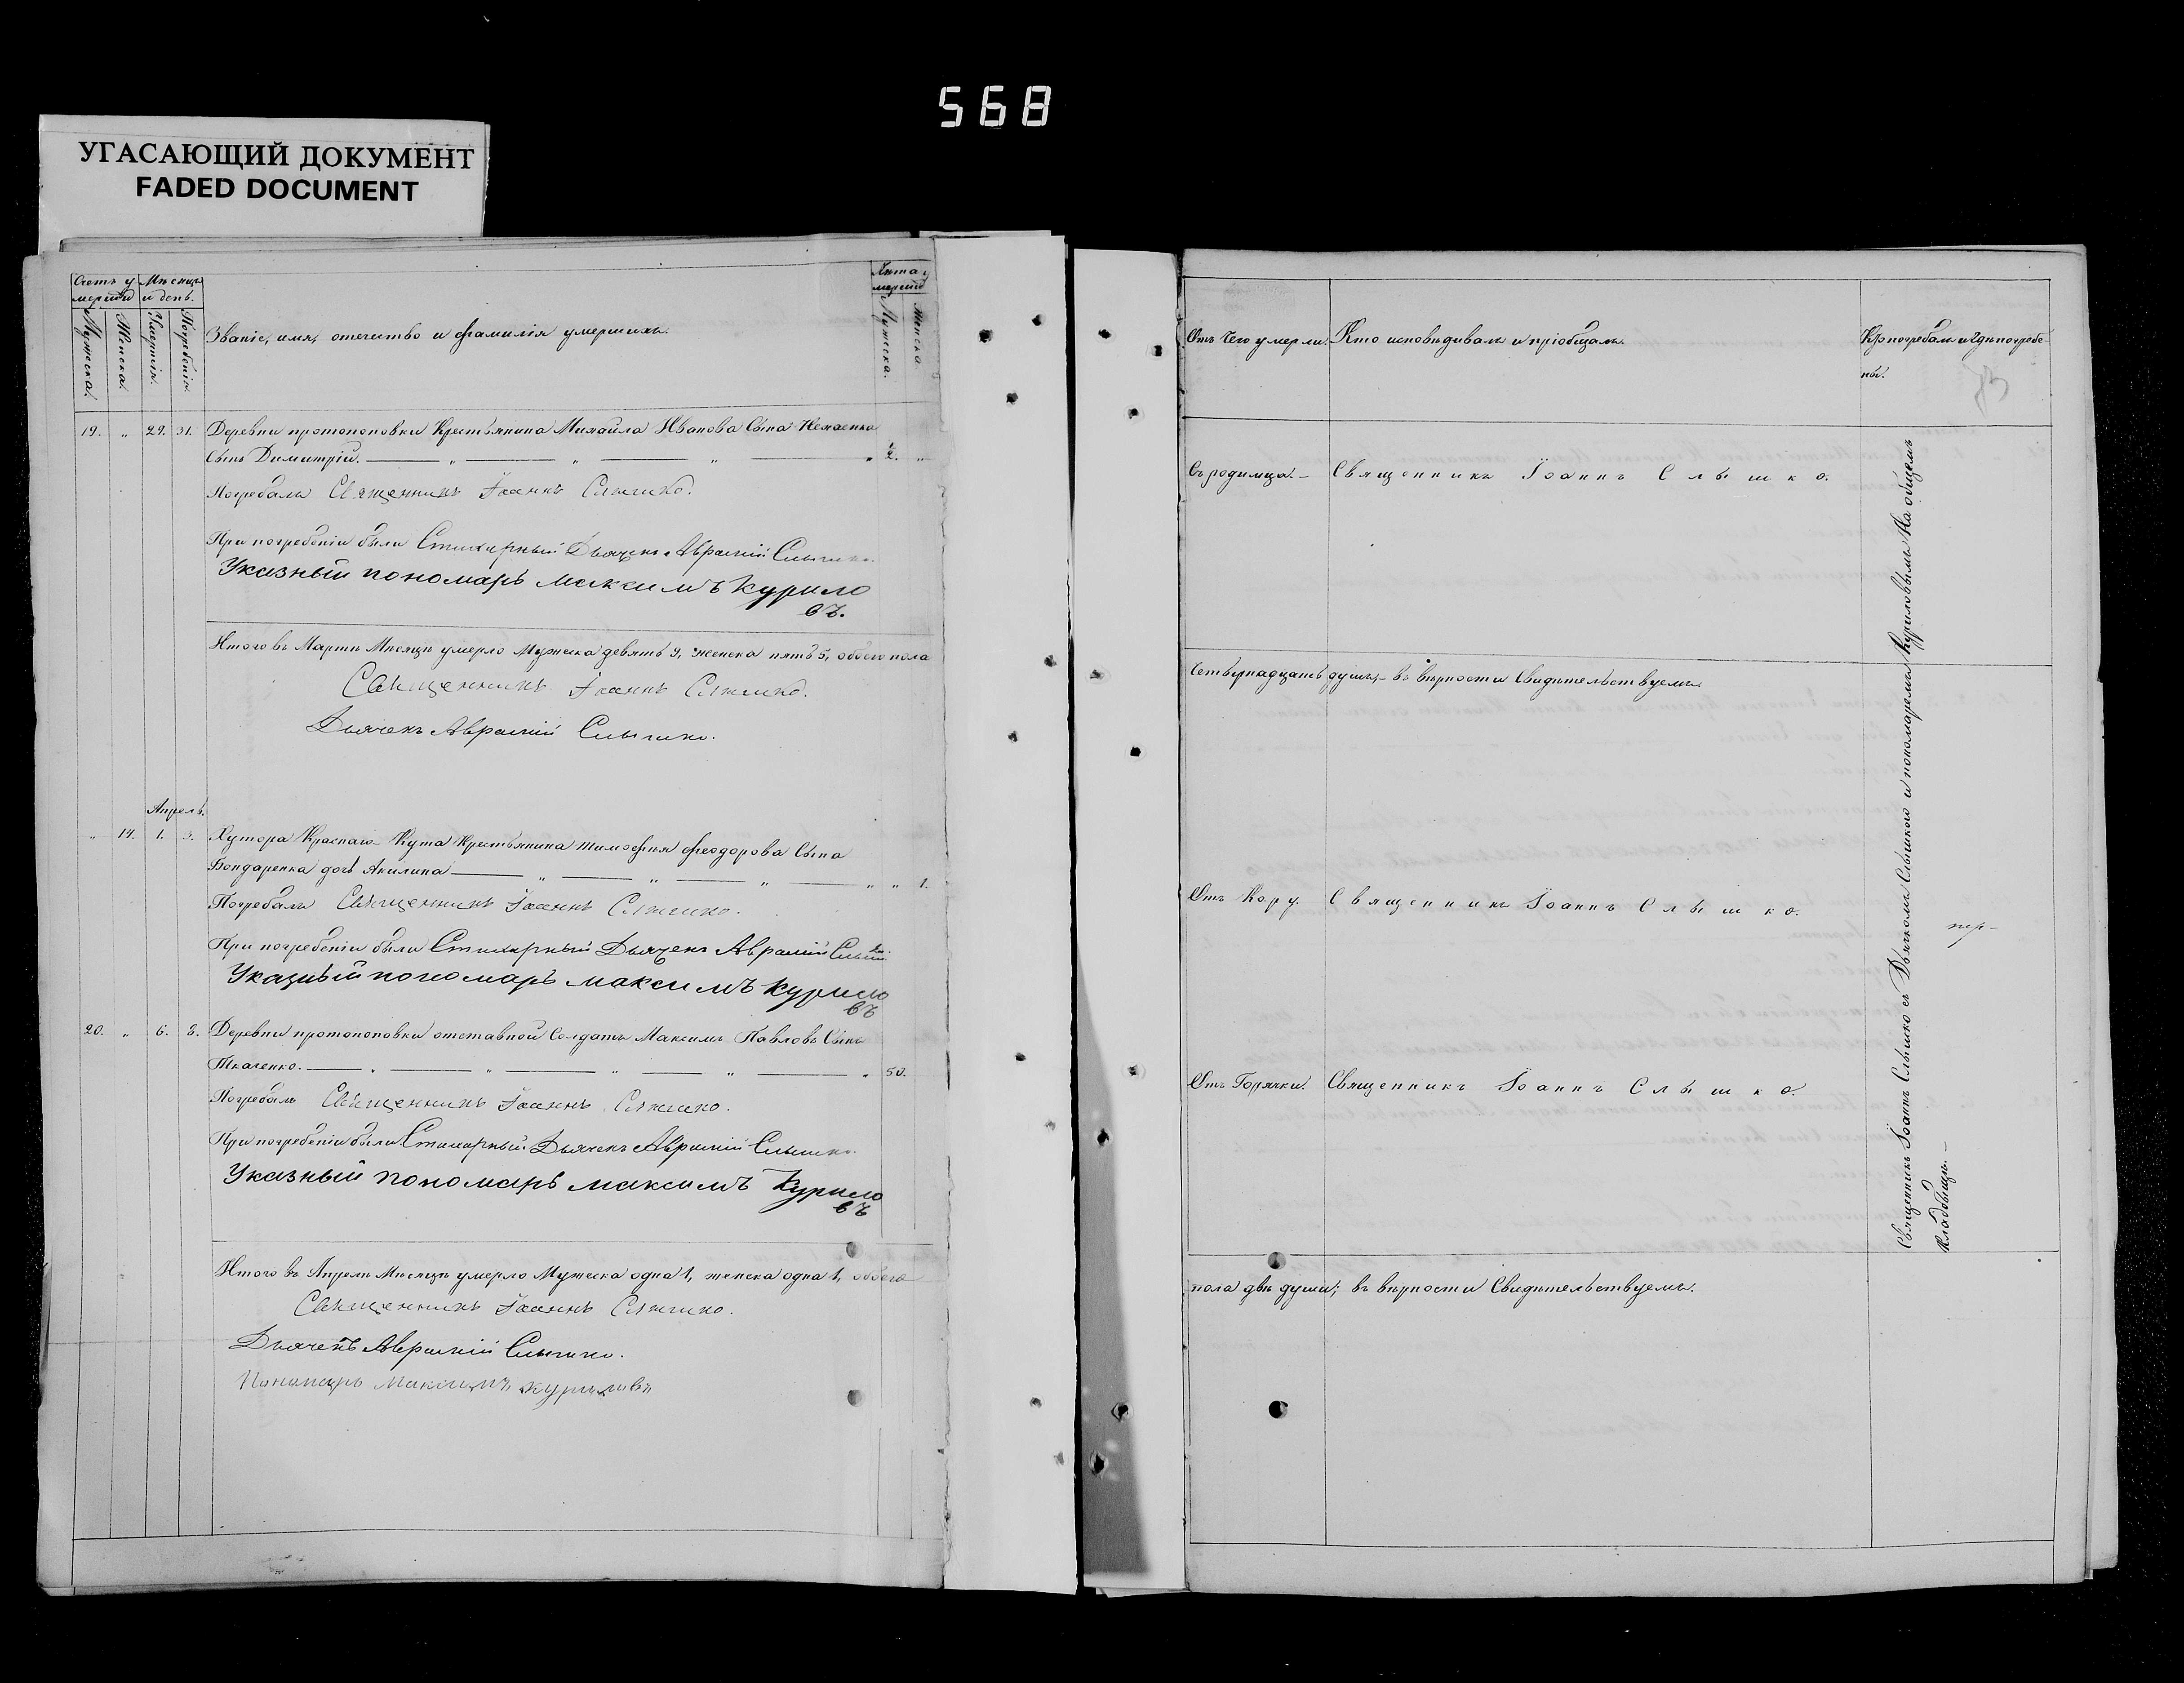 568
УГАСАЮЩИЙ ДОКУМЕНТ
FADED DOCUMENT
Счетъ у
мершихъ
Мѣсяцъ
и день.
Мужеска.
Женска.
Смерти.
Погребенія.
Званіе, имя, отечество и фамилія умершихъ.
Лѣта у
мершихъ
Мужеска.
Женска.
19. „ 29. 31. Деревни протопоповки Крестьянина Михайла Иванова Сына
Сынъ Димитрій. „ „ „ „ 2. „
Погребалъ Священникъ Іоаннъ Слышко.
При погребеніи были Стихарный Дьячекъ Аврамій Слышко.
Указный пономарь максимъ Курило
въ.
Итого въ Мартѣ Мѣсяцѣ умерло Мужеска девять 9, женска пять 5, обоего пола
Священникъ Іоаннъ Слышко.
Дьячекъ Аврамій Слышко.
Апрель.
„ 14. 1. 3. Хутора Краснаго Кута Крестьянина Тимофея Феодорова Сына
Бондаренка дочь Акилина „ „ „ „ „ 1.
Погребалъ Священникъ Іоаннъ Слышко.
При погребеніи были Стихарный Дьячекъ Аврамій Слышко
Указный пономарь максимъ курило
въ
20. „ 6. 8. Деревни протопоповки отставной Солдатъ Максимъ Павловъ Сынъ
Ткаченко. „ „ „ „ „ 50.
Погребалъ Священникъ Іоаннъ Слышко.
При погребеніи были Стихарный Дьячекъ Аврамій Слышко.
Указный пономарь максимъ Курило
въ
Итого въ Апрелѣ Мѣсяцѣ умерло Мужеска одна 1, женска одна 1, обоего
Священникъ Іоаннъ Слышко.
Дьячекъ Аврамій Слышко.
Пономарь Максимъ Куриловъ
Отъ Чего умерли. Кто исповѣдывалъ и пріобщалъ. Кто погребалъ и гдѣ погребе-
ны.
Съ родимца. Священникъ Іоаннъ Слышко.
Четырнадцать душъ, въ вѣрности Свидѣтельствуемъ.
Отъ Кору. Священникъ Іоаннъ Слышко.
Отъ Горячки. Священникъ Іоаннъ Слышко.
Священникъ Іоаннъ Слышко съ Дьячкомъ Слышкою и пономаремъ Куриловымъ На общемъ
Кладбищѣ.
пола двѣ души; въ вѣрности Свидѣтельствуемъ.